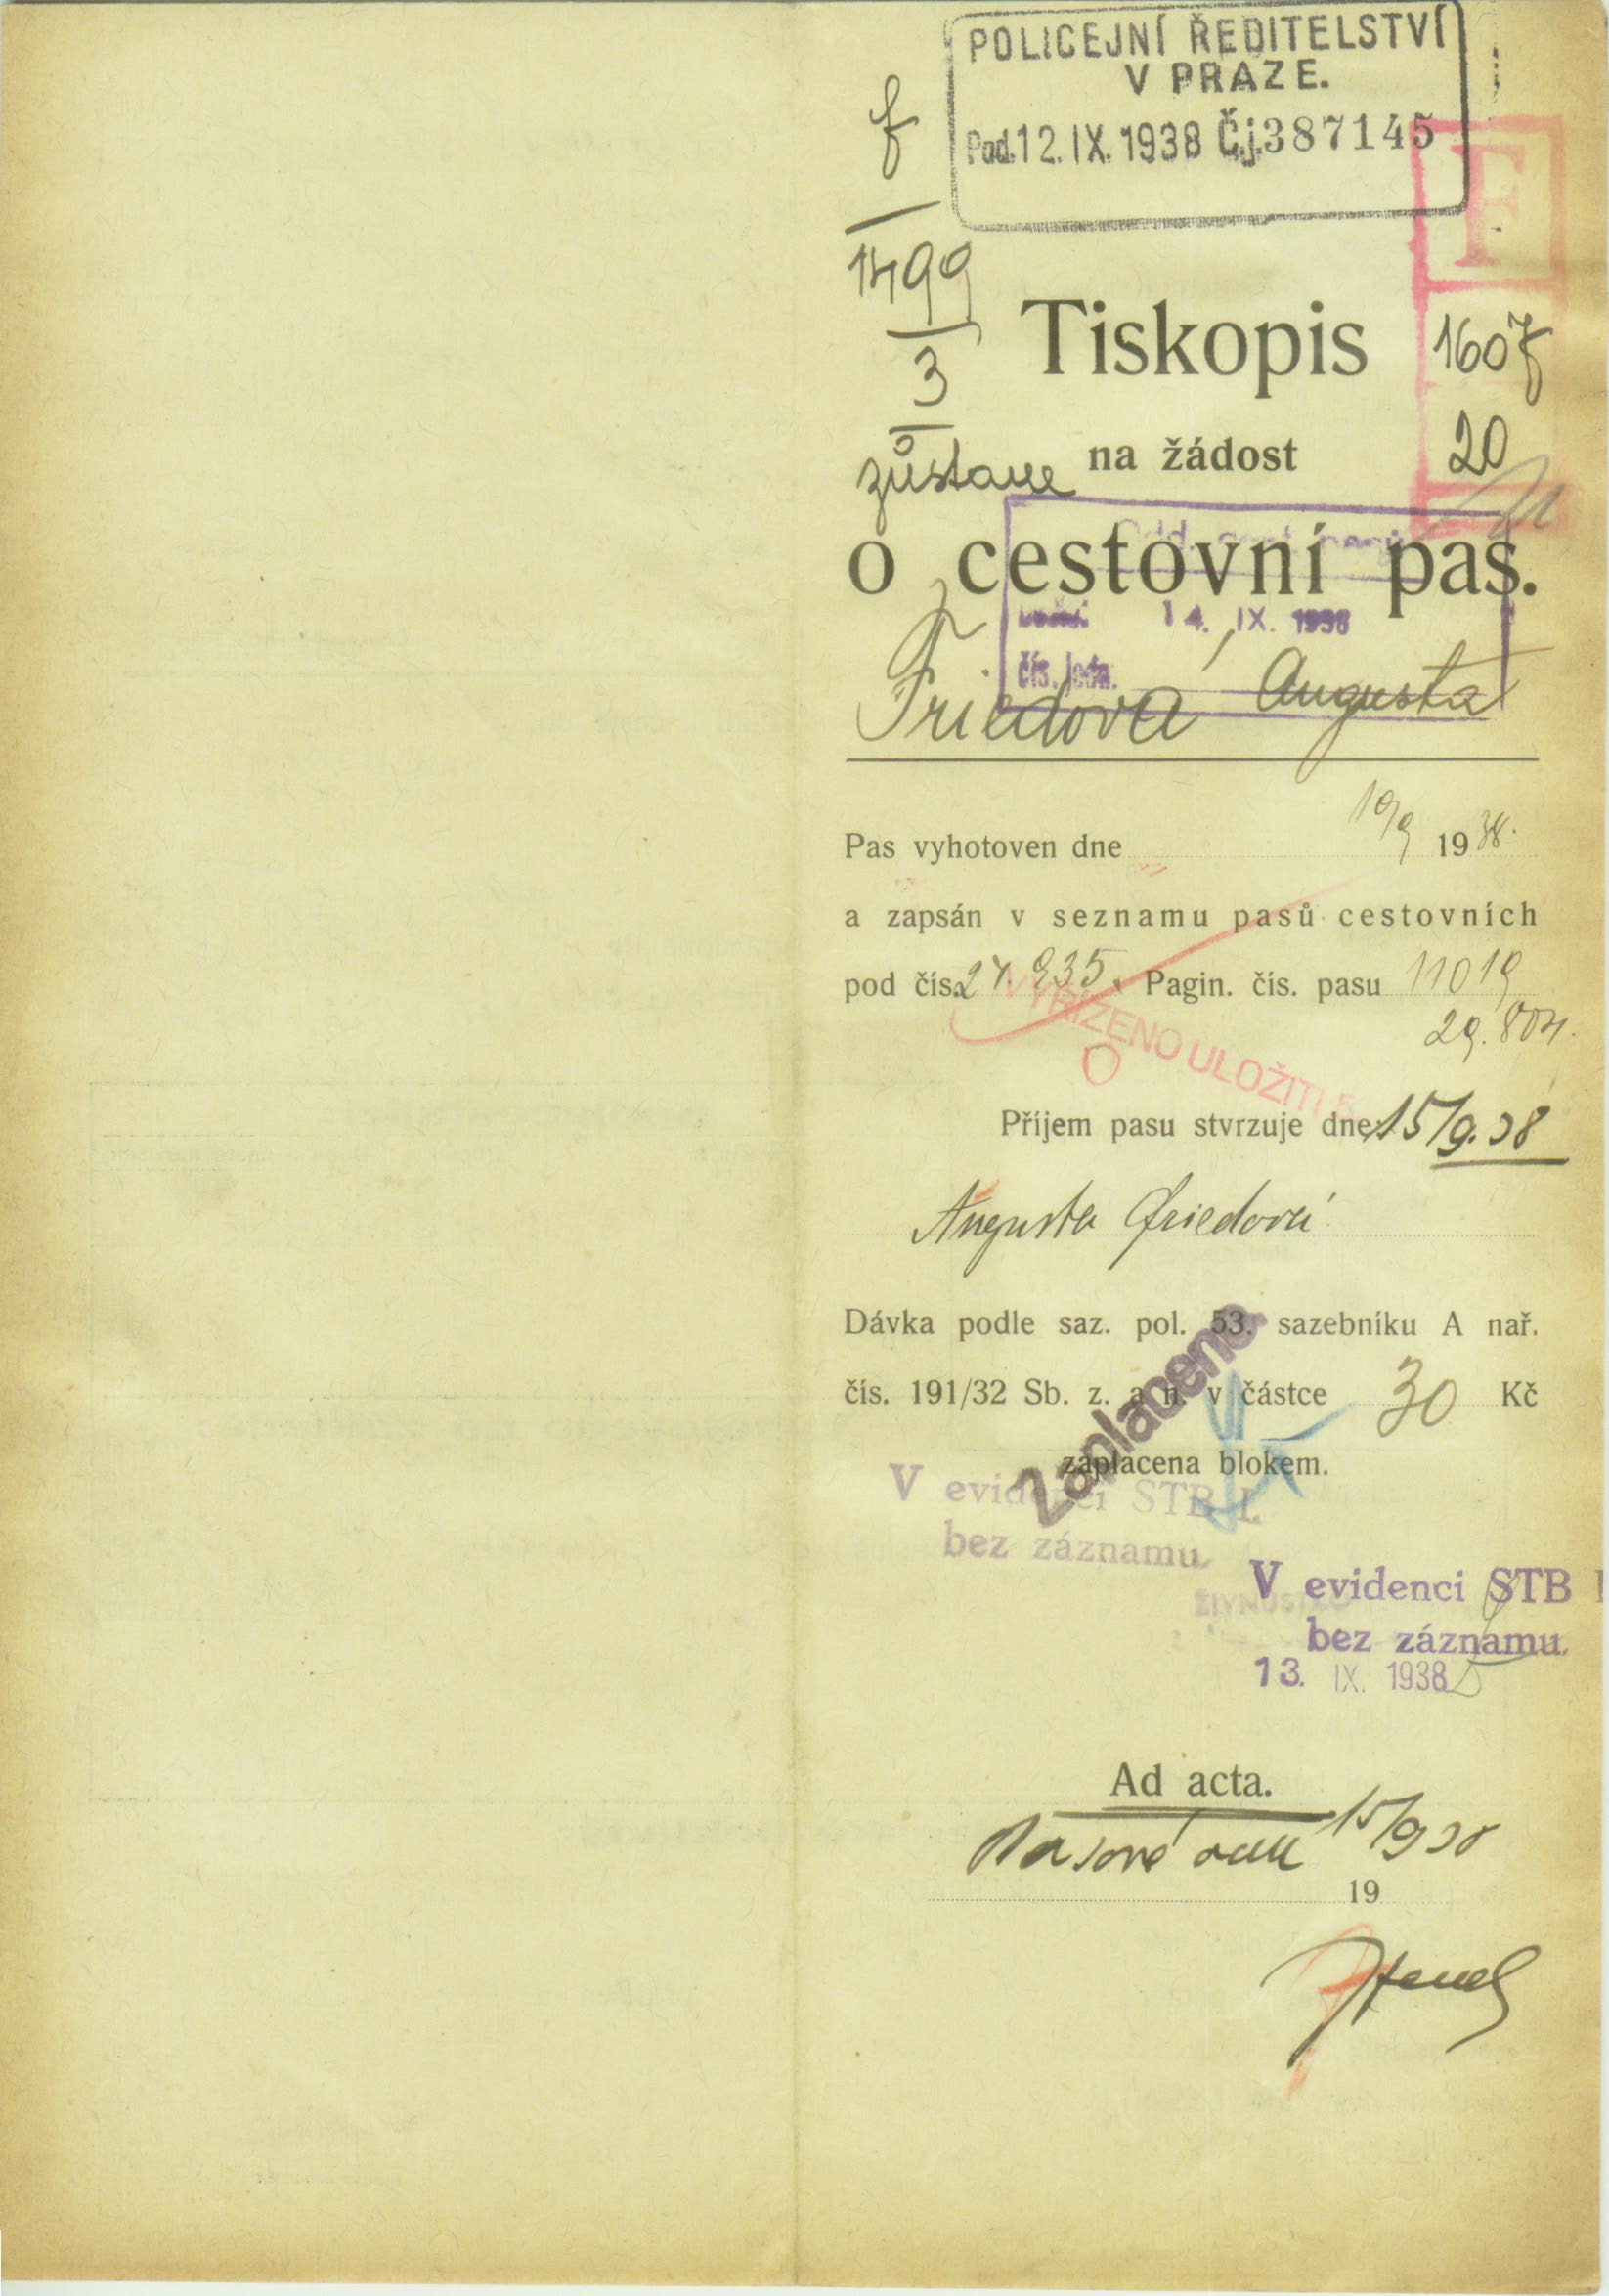 POLICEJNÍ ŘEDITELSTVÍ
V PRAZE.
Pod. 12. IX. 1938 Č.j. 387145
f
1499
3
zůstane
F
1607
20
Tiskopis
na žádost
o cestovní pas.
14. IX. 1938
čís. jedn.
Friedová Augusta
Pas vyhotoven dne 1938.
a zapsán v seznamu pasů cestovních
pod čís. 935. Pagin. čís. pasu 11019
29.804.
VYŘÍZENO ULOŽITI
Příjem pasu stvrzuje dne 15/9.38
Augusta Friedová
Dávka podle saz. pol. 53. sazebníku A nař.
čís. 191/32 Sb. z. a n. v částce 30 Kč
zaplacena blokem.
Zaplaceno
V evidenci STB I.
bez záznamu.
V evidenci STB I
bez záznamu.
13. IX. 1938
Ad acta.
15/9 38
19